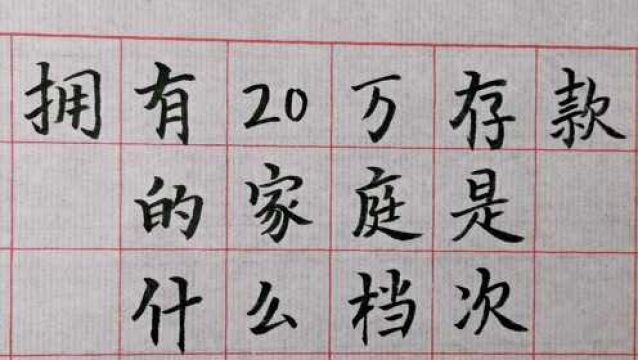 拥有20万存款
的家庭是
什么档次